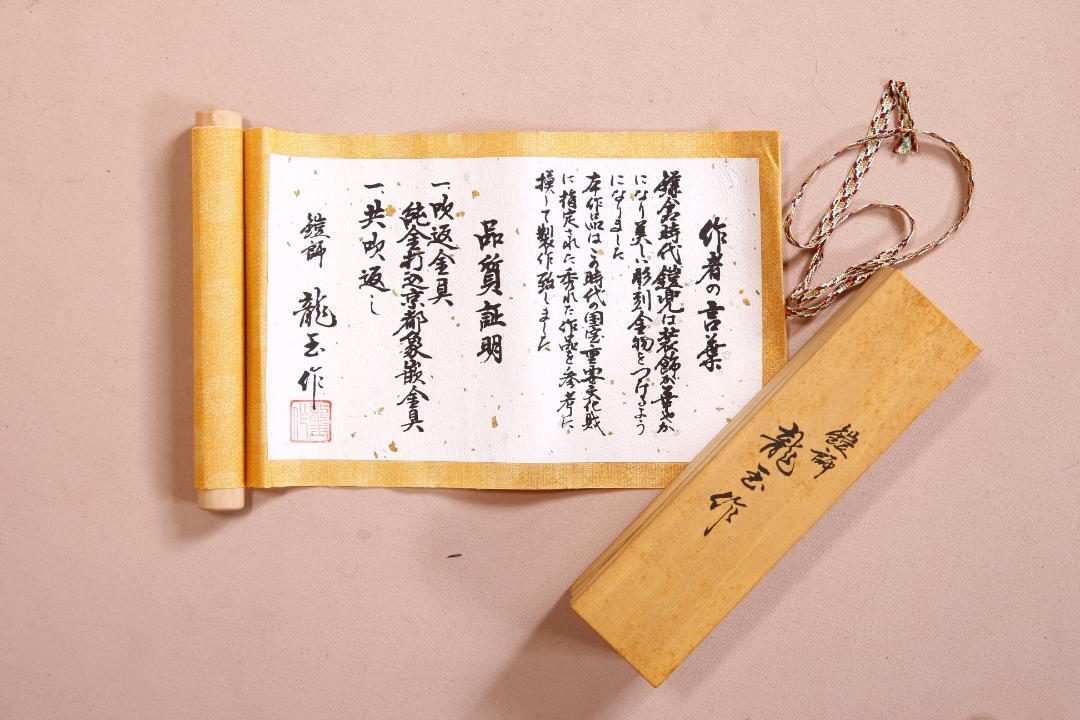 作者の言葉
鎌倉時代鎧兜は装飾が華やか
になり美しい彫刻金物をつけるよう
になりました
本作品はこの時代の国宝重要文化財
に指定された秀れた作品を参考に
模して製作致しました
品質証明
一、吹返金具
純金打込京都象嵌金具
一、共吹返し
鎧師 龍玉作
鎧師
龍玉作